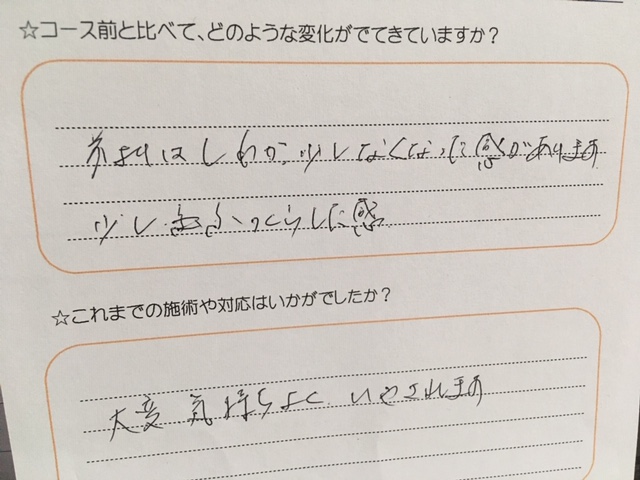 ☆コース前と比べて、どのような変化がでてきていますか？
はしわが少しなくなった感があります
少しふっくらした感
☆これまでの施術や対応はいかがでしたか？
大変気持ちよく、いやされます